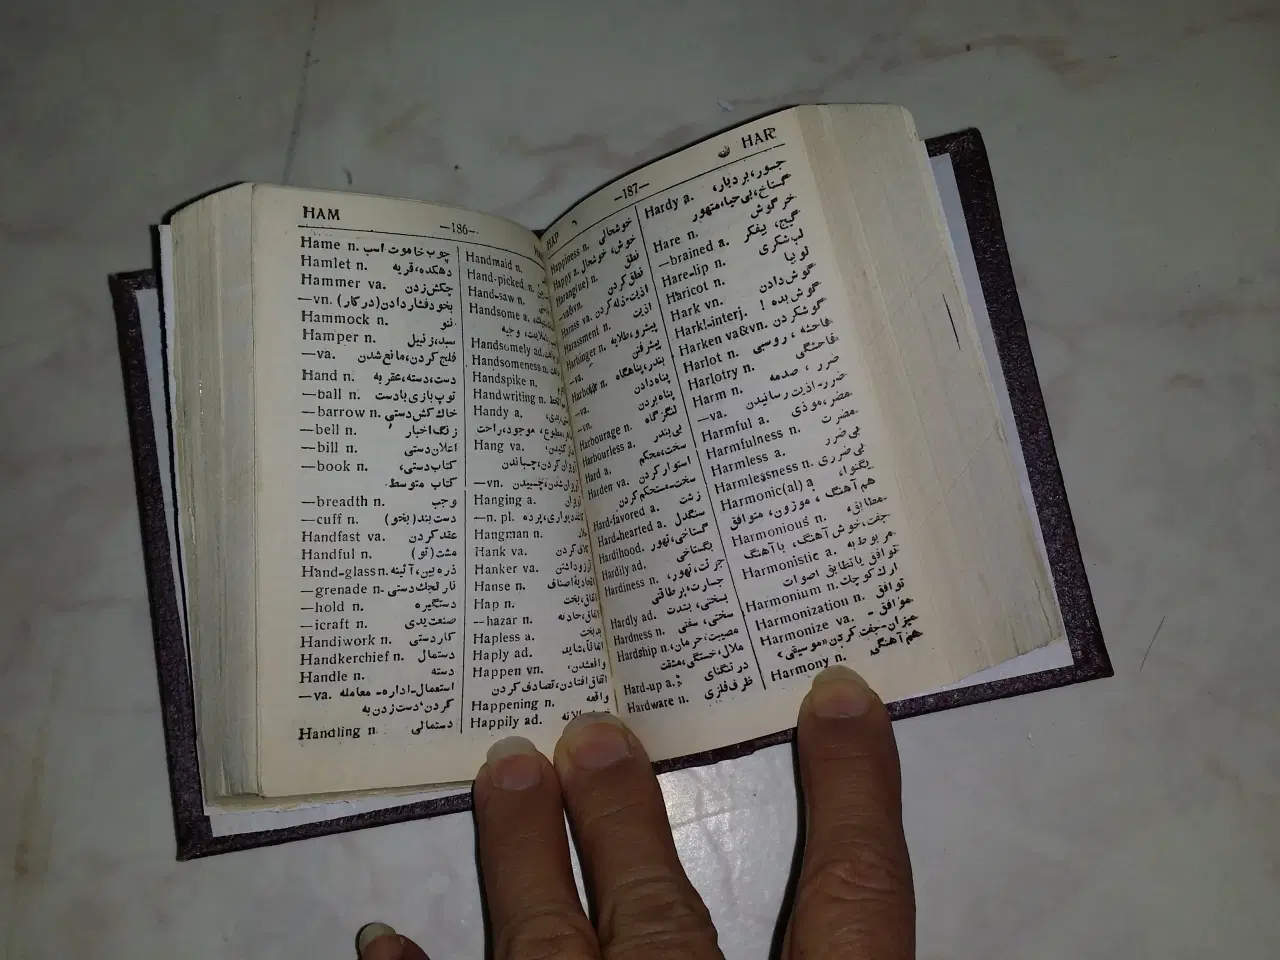 HAM
—186—
Hame n. چوب خاموت اسب
Hamlet n. دهکده،قریه
Hammer va. چکش‌زدن
—vn. بخودفشاردادن(درکار)
Hammock n. ننو
Hamper n. سبد،زنبیل
—va. فلج کردن،مانع شدن
Hand n. دست،دسته،عقربه
—ball n. توپ بازی بادست
—barrow n. خاك كش دستی
—bell n. زنگ اخبار
—bill n. اعلان دستی
—book n. کتاب دستی،
کتاب متوسط
—breadth n. وجب
—cuff n. دست بند(بخو)
Handfast va. عقد کردن
Handful n. مشت(تو)
Hand-glass n. ذره بین،آئینه
—grenade n. نارنجك دستی
—hold n. دستگیره
—icraft n. صنعت یدی
Handiwork n. کاردستی
Handkerchief n. دستمال
Handle n. دسته
—va. استعمال-اداره- معامله
کردن،دست زدن به
Handling n. دستمالی
Handmaid n.
Hand-picked n.
Hand-saw n.
Handsome a.
وجیه
Handsomely ad.
Handsomeness n.
Handspike n.
Handwriting n.
Handy a.
موجود،راحت
Hang va.
—vn.
Hanging a.
—n. pl. پرده
Hangman n.
Hank va.
Hanker va. آرزوداشتن
Hanse n. اتحادیۀ اصناف
Hap n. اتفاق،بخت
—hazar n. اتفاق،حادثه
Hapless a. بدبخت
Haply ad. اتفاقاً،شاید
Happen vn. واقعشدن،
اتفاق افتادن،تصادف کردن
Happening n. واقعه
Happily ad.
HAP
—187—
HAR
Happiness n. خوشحالی
Happy a. خوش، خوشحال
Harang(ue) n. نطق
—va&vn. نطق کردن
Harass va. اذیت،ذله کردن
Harassment n. اذیت
Harbinger n. پیشرو،طلایه
—va. پیشرفتن
Harbour n. بندر،پناهگاه
—va. پناه دادن
—vn. پناه بردن
Harbourage n. لنگرگاه
Harbourless a. بی بندر
Hard a. سخت،محکم
Harden va. استوار کردن
سخت-مستحکم کردن
Hard-favored a. زشت
Hard-hearted a. سنگدل
Hardihood. گستاخی،تهور
Hardily ad. بگستاخی
Hardiness n. جرئت،تهور،
جسارت،پرطاقتی
Hardly ad. بسختی، بندت
Hardness n. سختی، سفتی
Hardship n. مصیبت،حرمان،
ملال،خستگی،مشقت
Hard-up a. درتنگنای
Hardware n. ظرف فلزی
Hardy a. جسور،بردبار،
گستاخ،بی حیا،متهور
Hare n. خرگوش
—brained a. گیج، بیفکر
Hare-lip n. لب شکری
Haricot n. لوبیا
Hark vn. گوش دادن
Hark!-interj. گوش بده !
Harken va&vn. گوشکردن
Harlot n. فاحشه، روسپی
Harlotry n. فاحشگی
Harm n. ضرر ، صدمه
—va. ضرر-اذیت رسانیدن
Harmful a. مضر،موذی
Harmfulness n. مضرت
Harmless a. بی ضرر
Harmlessness n. بی ضرری
Harmonic(al) a
هم آهنگ ، موزون، متوافق
Harmonious n. مطابق،
جفت،خوش آهنگ، با آهنگ
Harmonistic a. مربوط به
توافق یا تطابق اصوات
Harmonium n. ارك كوچك
Harmonization n. توافق
Harmonize va. موافق -
میزان-جفت کردن«موسیقی»
Harmony n. هم آهنگی